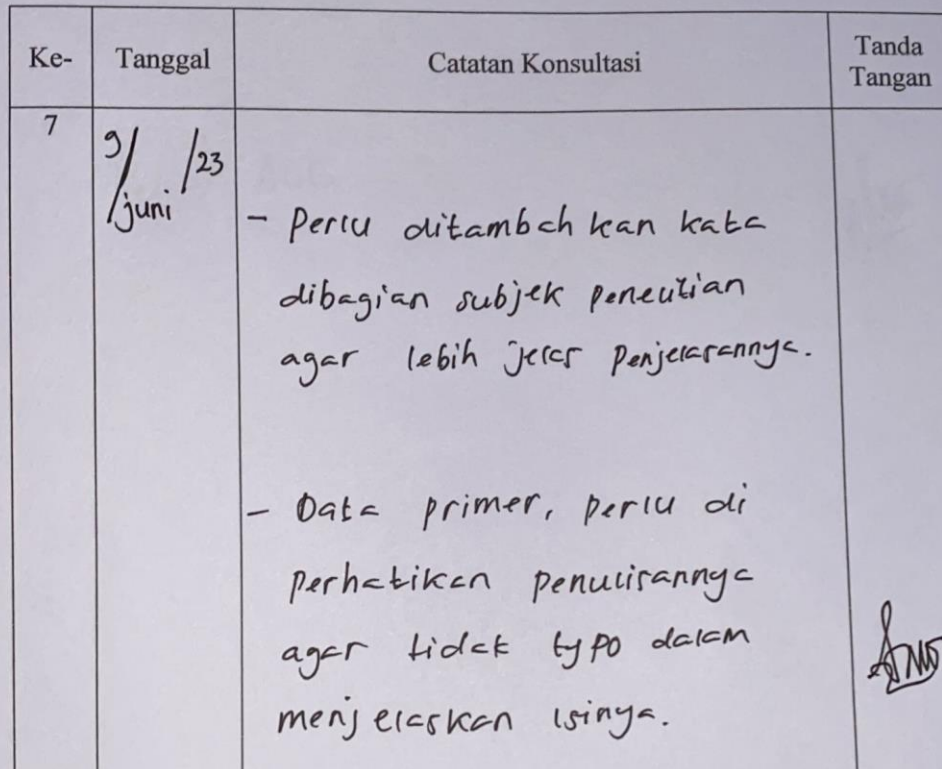 Ke- Tanggal Catatan Konsultasi Tanda Tangan
7
9/juni/23
- Perlu ditambahkan kata
dibagian subjek penelitian
agar lebih jelas penjelasannya.
- Data primer, perlu di
perhatikan penulisannya
agar tidak typo dalam
menjelaskan isinya.